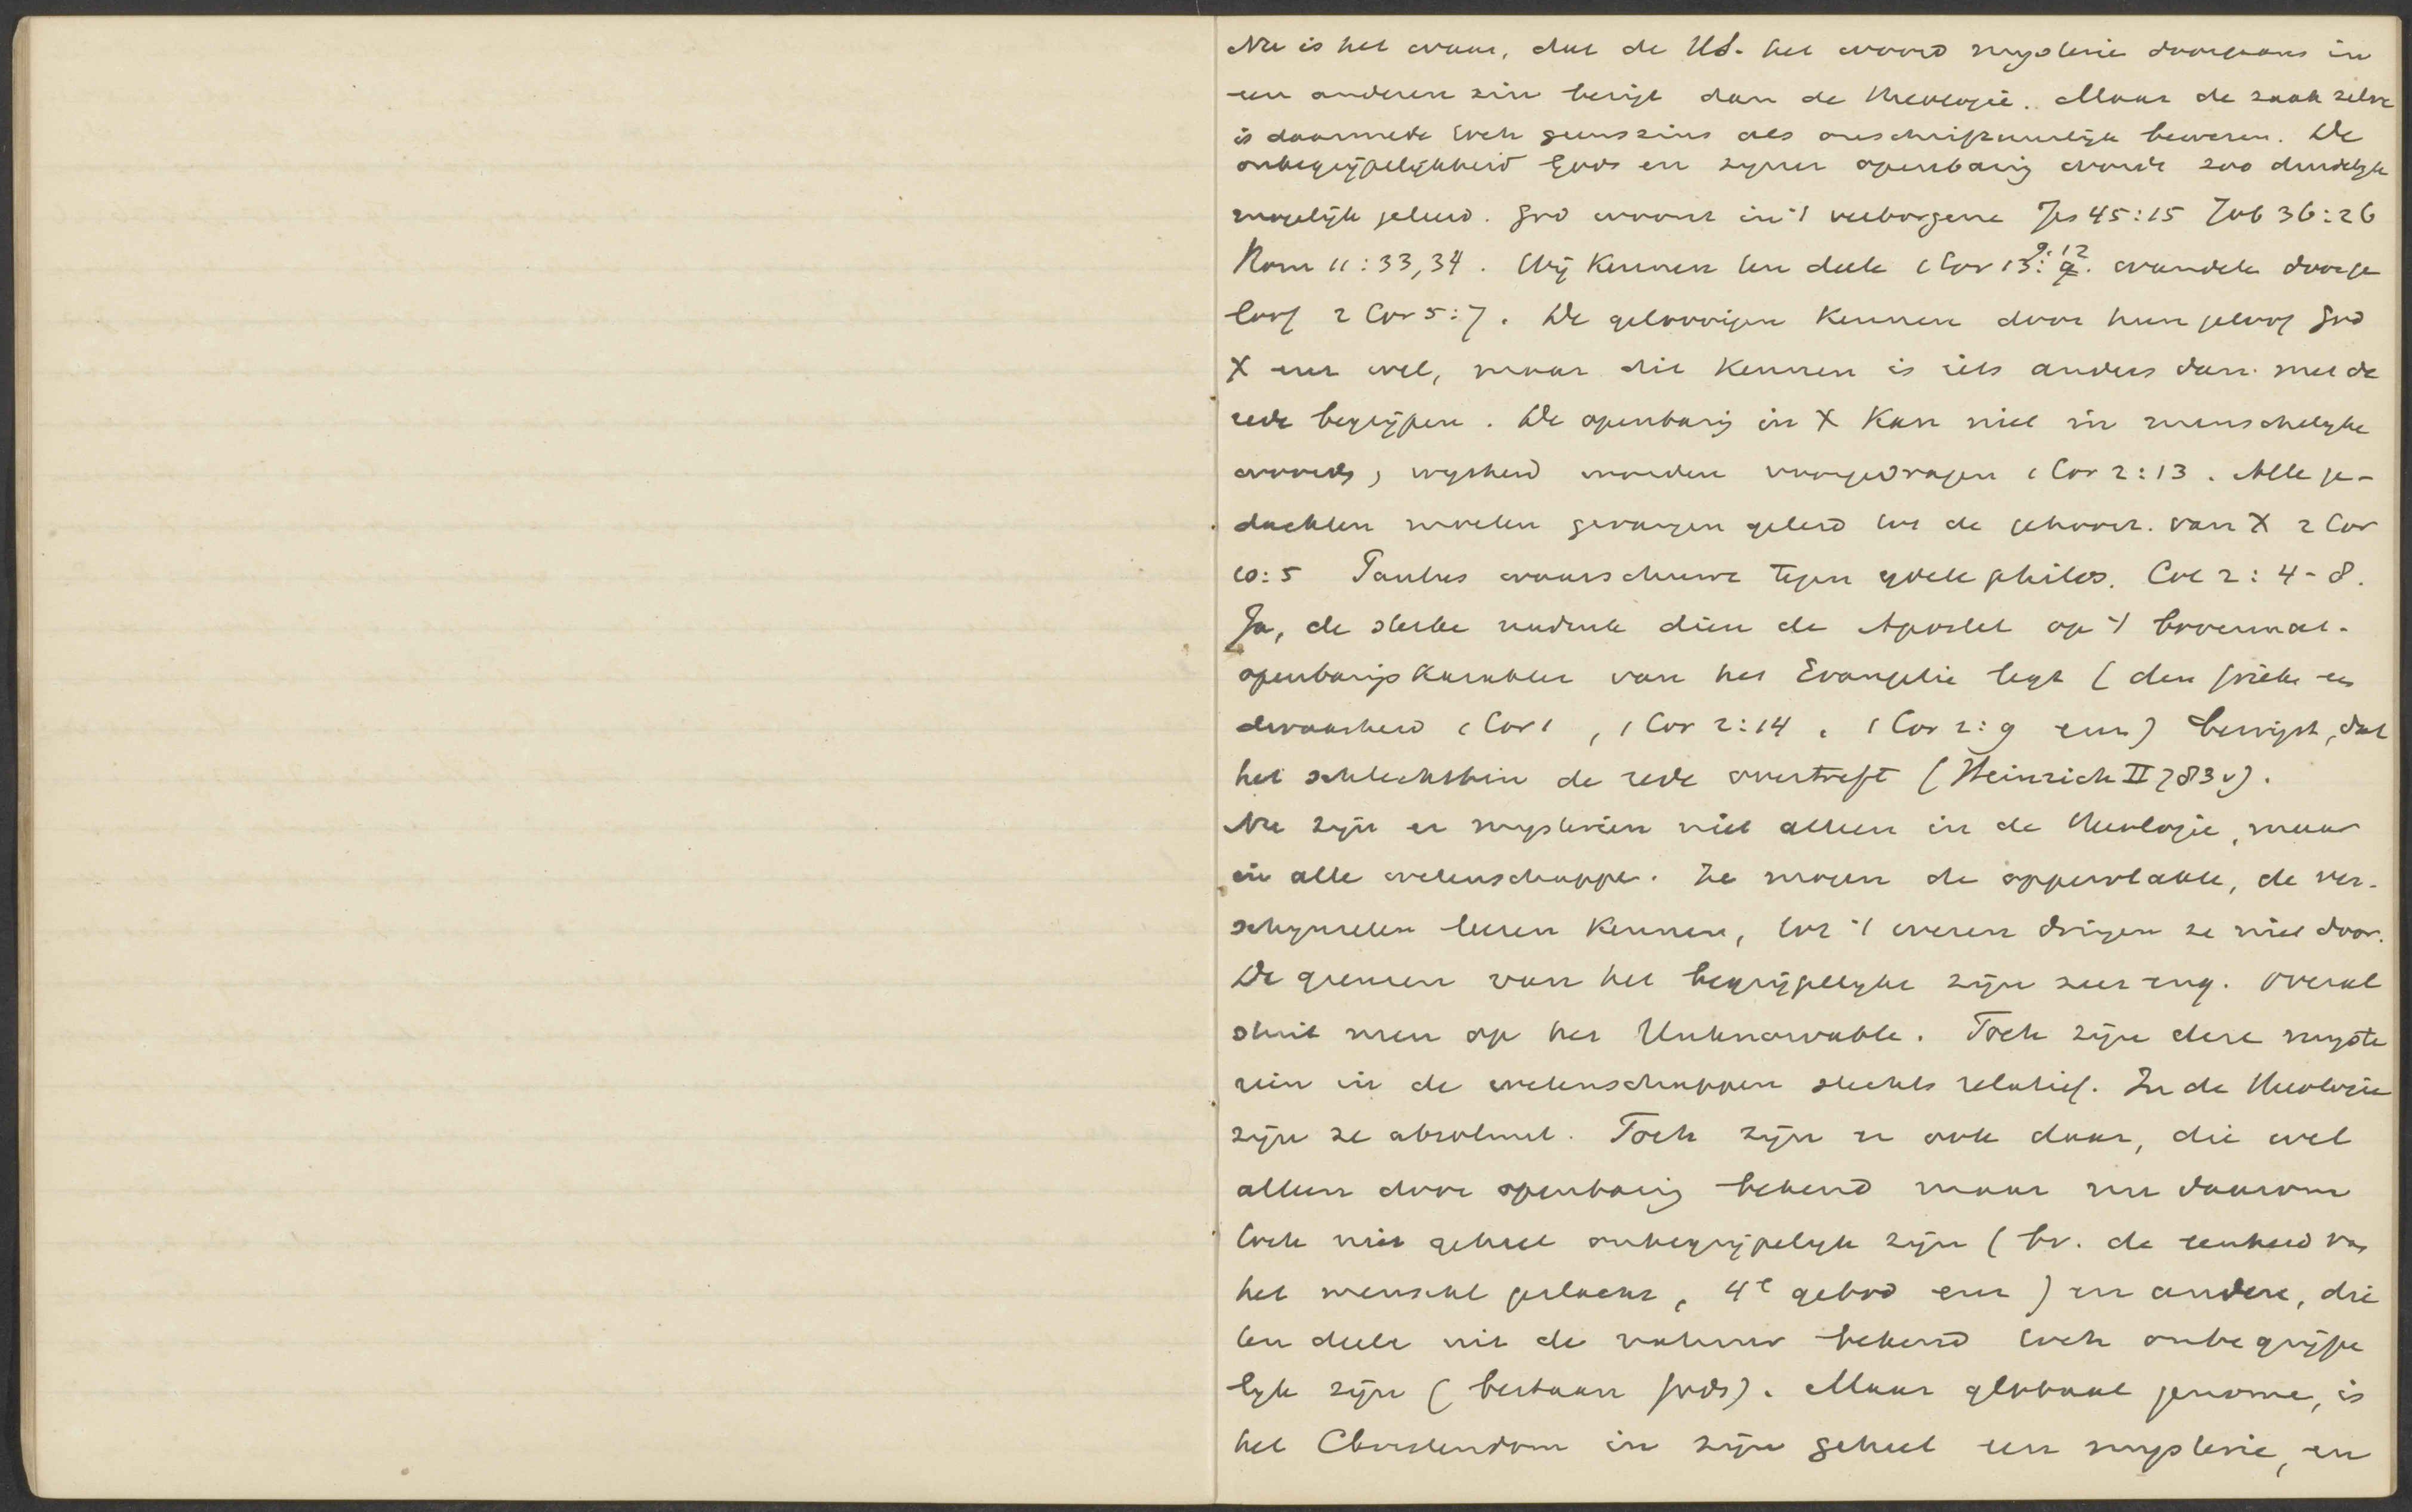 Nu is het waar, dat de HS. het woord mysterie doorgaans in
een anderen zin bezigt dan de theologie. Maar de zaak zelve
is daarmede toch geenszins als onschriftuurlijk bewezen. De
onbegrijpelijkheid Gods en zijner openbaring wordt zoo duidelijk
mogelijk geleerd. God woont in 't verborgene Jes 45:15 Job 36:26
Rom 11:33,34. Wij kennen ten deele 1 Cor 13: 9.12. wandelen door ge
loof 2 Cor 5:7. De geloovigen kennen door hun geloof God
X enz wel, maar dit kennen is iets anders dan met de
rede begrijpen. De openbaring in X kan niet in menschelyke
woorden, wysheid worden voorgedragen 1 Cor 2:13. Alle ge-
dachten moeten gevangen geleid tot de gehoorz. van X 2 Cor
10:5 Paulus waarschuwt tegen ydele philos. Col 2:4-8.
Ja, de sterke nadruk dien de Apostel op 't bovennat.
openbaringskarakter van het Evangelie legt (den grieken een
dwaasheid 1 Cor 1, 1 Cor 2:14, 1 Cor 2:9 enz) bewijst, dat
het schlechthin de rede overtreft (Heinrich II 783 v).
Nu zijn er mysteriën niet alleen in de theologie, maar
in alle wetenschappen. Ze mogen de oppervlakte, de ver-
schynselen leeren kennen, tot 't wezen dringen ze niet door.
De grenzen van het begrijpelyke zijn zeer eng. Overal
stuit men op het Unknowable. Toch zijn deze myste
riën in de wetenschappen slechts relatief. In de theologie
zijn ze absoluut. Toch zijn er ook daar, die wel
alleen door openbaring bekend maar nu daarom
toch niet geheel onbegrijpelyk zijn (bv. de eenheid van
het menschel geslacht, 4e gebod enz) en andere, die
ten deele uit de natuur bekend toch onbegrijpe
lyk zijn (bestaan Gods). Maar globaal genomen, is
het Christendom in zijn geheel een mysterie, en